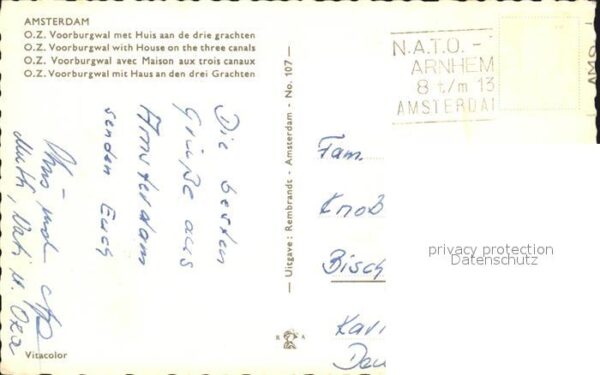 AMSTERDAM
O.Z. Voorburgwal met Huis aan de drie grachten
O.Z. Voorburgwal with House on the three canals
O.Z. Voorburgwal avec Maison aux trois canaux
O.Z. Voorburgwal mit Haus an den drei Grachten
Die besten
Grüße aus
Amsterdam
senden Euch
und
Muth, Vati u.
Vitacolor
— Uitgave: Rembrandt - Amsterdam - No. 107 —
R A
N.A.T.O. -
ARNHEM
8 t/m 13
AMSTERDA
AMS
Fam.
Knoß
Bisch
privacy protection
Datenschutz